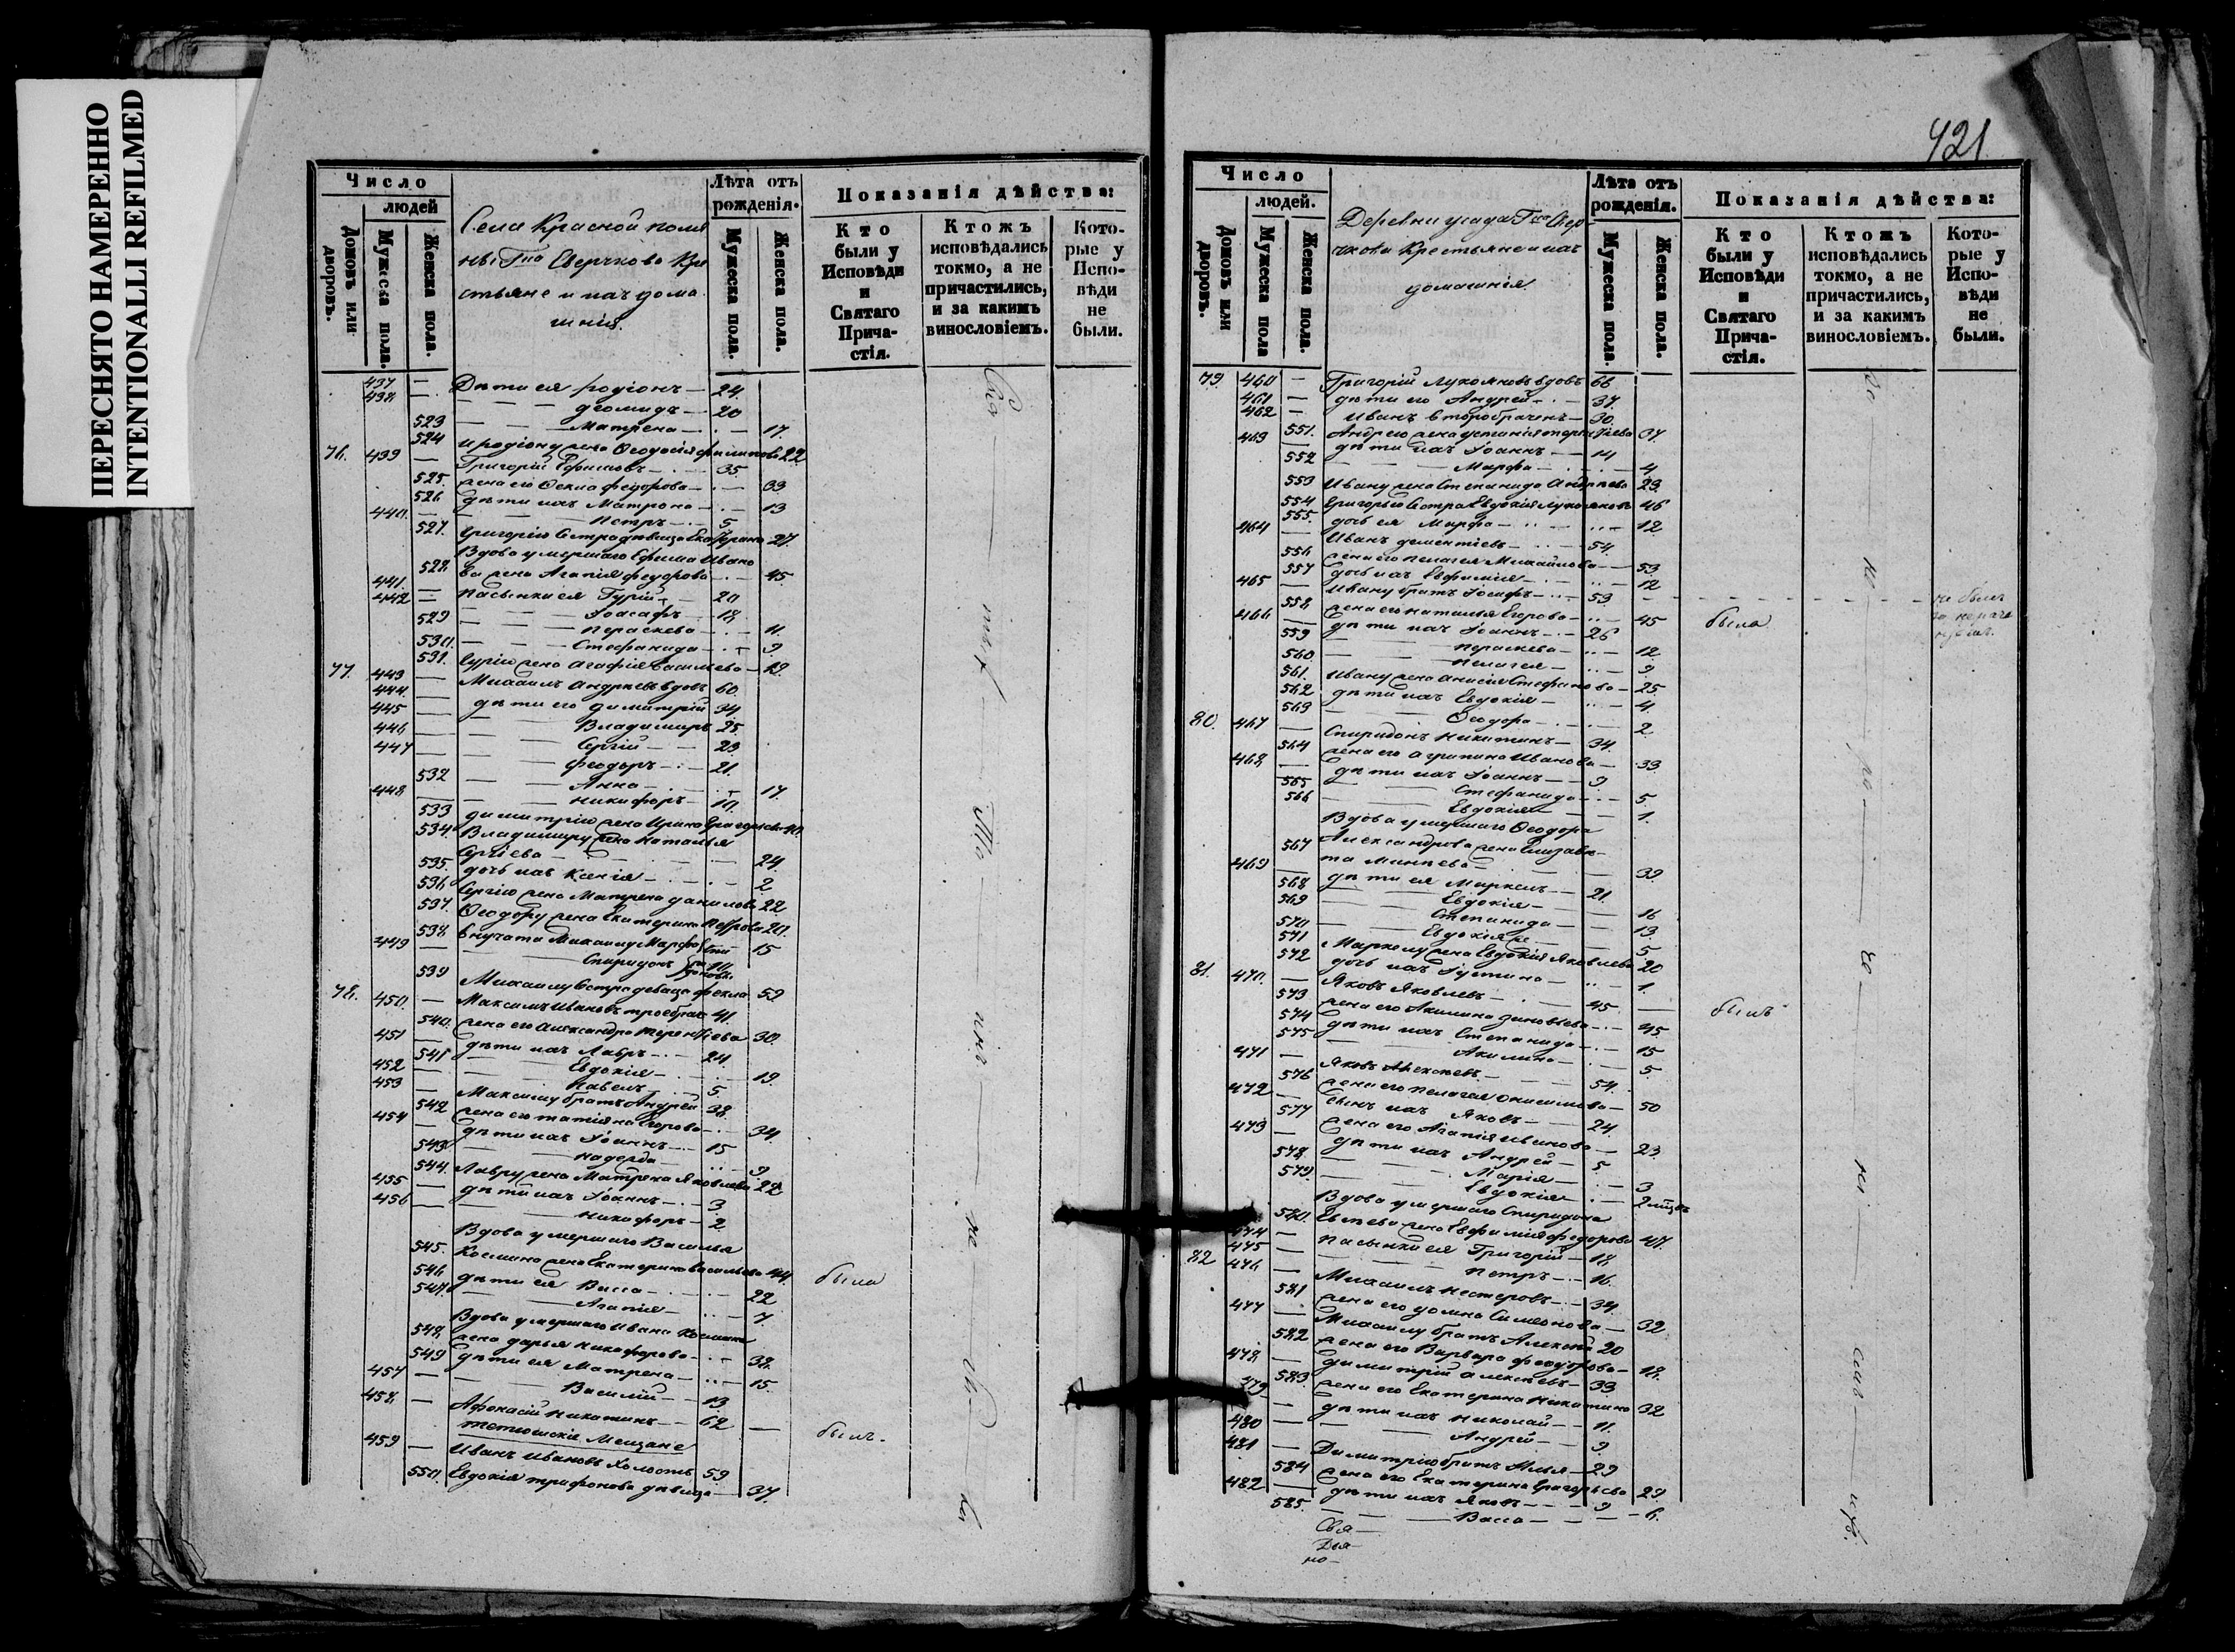 ПЕРЕСНЯТО НАМЕРЕННО
INTENTIONALLI REFILMED
Число
людей
Домовъ или дворовъ.
Мужеска пола.
Женска пола.
Села Красной поля
ны Гна Сверчкова Кре
стьяне и ихъ дома
шнія.
Лѣта отъ рожденія.
Мужеска пола.
Женска пола.
Показанія дѣйства:
Кто были у Исповѣди и Святаго Прича-стія.
Ктожъ исповѣдались токмо, а не причастились, и за какимъ винословіемъ.
Кото-рые у Испо-вѣди не были.
437 — Дѣти ея Родіонъ — 24
438 — — Деомидъ — 20
523 — Матрена — 17.
524 Иродіону жена Ѳеодосія Филипова 22
76. 439 — Григорій Ефимовъ — 35
525. жена его Ѳекла Федорова — 33
526 дѣти ихъ Матрона — 13
440. — Петръ — 5
527. Григорію Сестра дѣвица Екатерина 27.
Вдова умершаго Ефима Ивано
528. ва жена Агапія Федорова — 45
441. — Пасынки ея Гурій — 20
442 — — Іоасафъ — 18
529 — Параскева — 11.
530. — Стефанида — 9
531. Гурію жена Агафія Васильева — 19.
77. 443 — Михаилъ Андреевъ вдовъ 60
444. — дѣти его Димитрій 34
445 — — Владимиръ 25
446 — — Сергій — 23
447 — — Феодоръ — 21.
532 — Анна — 17.
448 — Никифоръ — 10.
533 Димитрію жена Ирина Григорьева 40
534. Владимиру жена Наталья
Сергіева — 24.
535. дочь ихъ Ксенія — 2
536 Сергію жена Матрена Данилова 22
537. Ѳеодору жена Екатерина Петрова 20.
538. Внучата Михаилу Марфа 15
449 — Спиридонъ
539 Михаилу Сестра девица Фекла 52
78. 450. — Максимъ Ивановъ троебрач 41.
540. жена его Александра Терентіева 30.
451 — дѣти ихъ Лавръ — 24.
541 — Евдокія — 19.
452 — Павелъ — 5.
453 — Максиму братъ Андрей 38.
542 жена его Татіяна Егорова — 34
454 — дѣти ихъ Іоаннъ — 15
543. — Надежда — 9
544. Лавру жена Матрена Яковлева 22
455 — дѣти ихъ Іоаннъ — 3
456 — Никифоръ — 2
Вдова умершаго Василья
545. Космина жена Екатерина Васильева 44 была
546 дѣти ея Васса — 22
547. — Агапія — 7
Вдова умершаго Ивана Космина
548 жена Дарья Никифорова — 38.
549 дѣти ея Матрена — 15.
457 — Василій — 13
458. — Афонасій Никитинъ — 62 — былъ.
Тетюшскіе Мещане
459 — Иванъ Ивановъ Холостъ 59
550. Евдокія Трифонова дѣвица — 37.
421
Число
людей.
Домовъ или дворовъ.
Мужеска пола
Женска пола.
Деревни усада Гна Свер-
чкова Крестьяне и ихъ
домашнія
Лѣта отъ рожденія.
Мужеска пола.
Женска пола.
Показанія дѣйства:
Кто были у Исповѣди и Святаго Прича-стія.
Ктожъ исповѣдались токмо, а не причастились, и за какимъ винословіемъ.
Кото-рые у Испо-вѣди не были.
79. 460 — Григорій Лукояновъ вдовъ 66
461 — дѣти его Андрей — 37.
462 — Иванъ второбраченъ — 30.
551. Андрею жена Устинія 37.
463 — дѣти ихъ Іоаннъ — 14
552 — Марфа — 4
553 Ивану жена Степанида Андреева 23
554 Григорью Сестра Евдокія Лукоянова 46
555. дочь ея Марфа — 12
464 — Иванъ Дементіевъ — 54.
556 жена его Пелагея Михайлова — 53
557 дочь ихъ Евфимія — 12
465 — Ивану братъ Іосифъ — 53 не былъ
558. жена его Наталья Егорова — 45 была
466 — дѣти ихъ Іоаннъ — 26
559 — Параскева — 12
560 — Пелагея — 9
561. Ивану жена Анисія Стефанова — 25
562 дѣти ихъ Евдокія — 4
563 — Ѳеодора — 2
80. 467 — Спиридонъ Никитинъ — 34.
564 жена его Агрипина Иванова — 33
468. — дѣти ихъ Іоаннъ — 9
565 — Стефанида — 5
566 — Евдокія — 1.
Вдова умершаго Ѳеодора
567 Александрова жена Елизаве-
та Минеева — 39
469 — дѣти ея Маркелъ — 21
568 — Евдокія — 16
569 — Степанида — 13.
570 — Евдокія — 5
571 Маркелу жена Евдокія Яковлева 20
572 дочь ихъ Іустина — 1.
81. 470. — Яковъ Яковлевъ — 45 — былъ
573 жена его Акилина Зиновьева — 45
574 дѣти ихъ Степанида — 15
575 — Акилина — 5
471 — Яковъ Алексѣевъ — 54.
576 жена его Пелагея Онисимова — 50
472 — Сынъ ихъ Яковъ — 24
577 жена его Агапія Иванова — 23
473 — дѣти ихъ Андрей — 5
578. — Марія — 3
579. — Евдокія — 2
Вдова умершаго Спиридона
580. Евсѣева жена Евфимія Федорова 47.
474 — Пасынки ея Григорій — 18
475 — Петръ — 16.
82 476 — Михаилъ Нестеровъ — 34
581 жена его Домна Симеонова — 32
477 — Михаилу братъ Алексѣй 20
582 жена его Варвара Феодорова — 18.
478. — Димитрій Алексѣевъ — 33
583 жена его Екатерина Никитина 32
479 — дѣти ихъ Николай — 11.
480 — Андрей — 9
481 — Димитрію братъ Илья — 29
584 жена его Екатерина Григорьева 29
482 — дѣти ихъ Яковъ — 9
585. — Васса — 6.